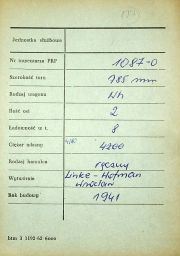 Jednostka służbowa
Nr inwentarza PKP 1087-0
Szerokość toru 785 mm
Rodzaj wagonu Wh
Ilość osi 2
Ładowność w t. 8
Ciężar własny 4200
Rodzaj hamulca ręczny
Wytwórnia Linke-Hofman
Wrocław
Rok budowy 1941